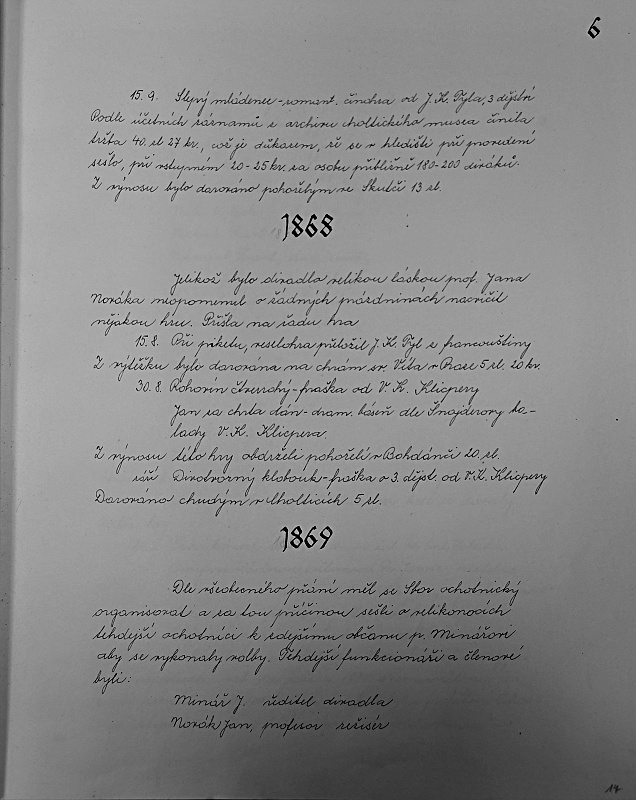 6
15. 9. Slepý mládenec - romant. činohra od J. K. Tyla, 3 dějství
Podle účetních záznamů z archivu choltického musea činila
tržba 40 zl 27 kr, což je důkazem, že se v hledišti při provedení
sešlo, při vstupném 20-25 kr. za osobu přibližně 180-200 diváků.
Z výnosu bylo darováno pohořelým ve Skutči 13 zl.
1868
Jelikož bylo divadlo velikou láskou prof. Jana
Nováka neopomenul o řádných prázdninách nacvičit
nějakou hru. Přišla na řadu hra
15. 8. Při piketu, veselohra přeložil J. K. Tyl z francouštiny
Z výtěžku bylo darována na chrám sv. Víta v Praze 5 zl. 20 kr.
30. 8. Rohovín Čtverrohý - fraška od V. K. Klicpery
Jan za chrta dán - dram. báseň dle Šnajderovy ba-
lady V. K. Klicpera.
Z výnosu této hry obdrželi pohořelí v Bohdanči 20 zl.
září Divotvorný klobouk - fraška o 3. dějst. od V. K. Klicpery
Darováno chudým v Cholticích 5 zl.
1869
Dle všeobecného přání měl se Sbor ochotnický
organisovat a za tou příčinou sešli o velikonocích
tehdejší ochotníci k zdejšímu občanu p. Minářovi
aby se vykonaly volby. Tehdejší funkcionáři a členové
byli:
Minář J. ředitel divadla
Novák Jan, profesor režisér